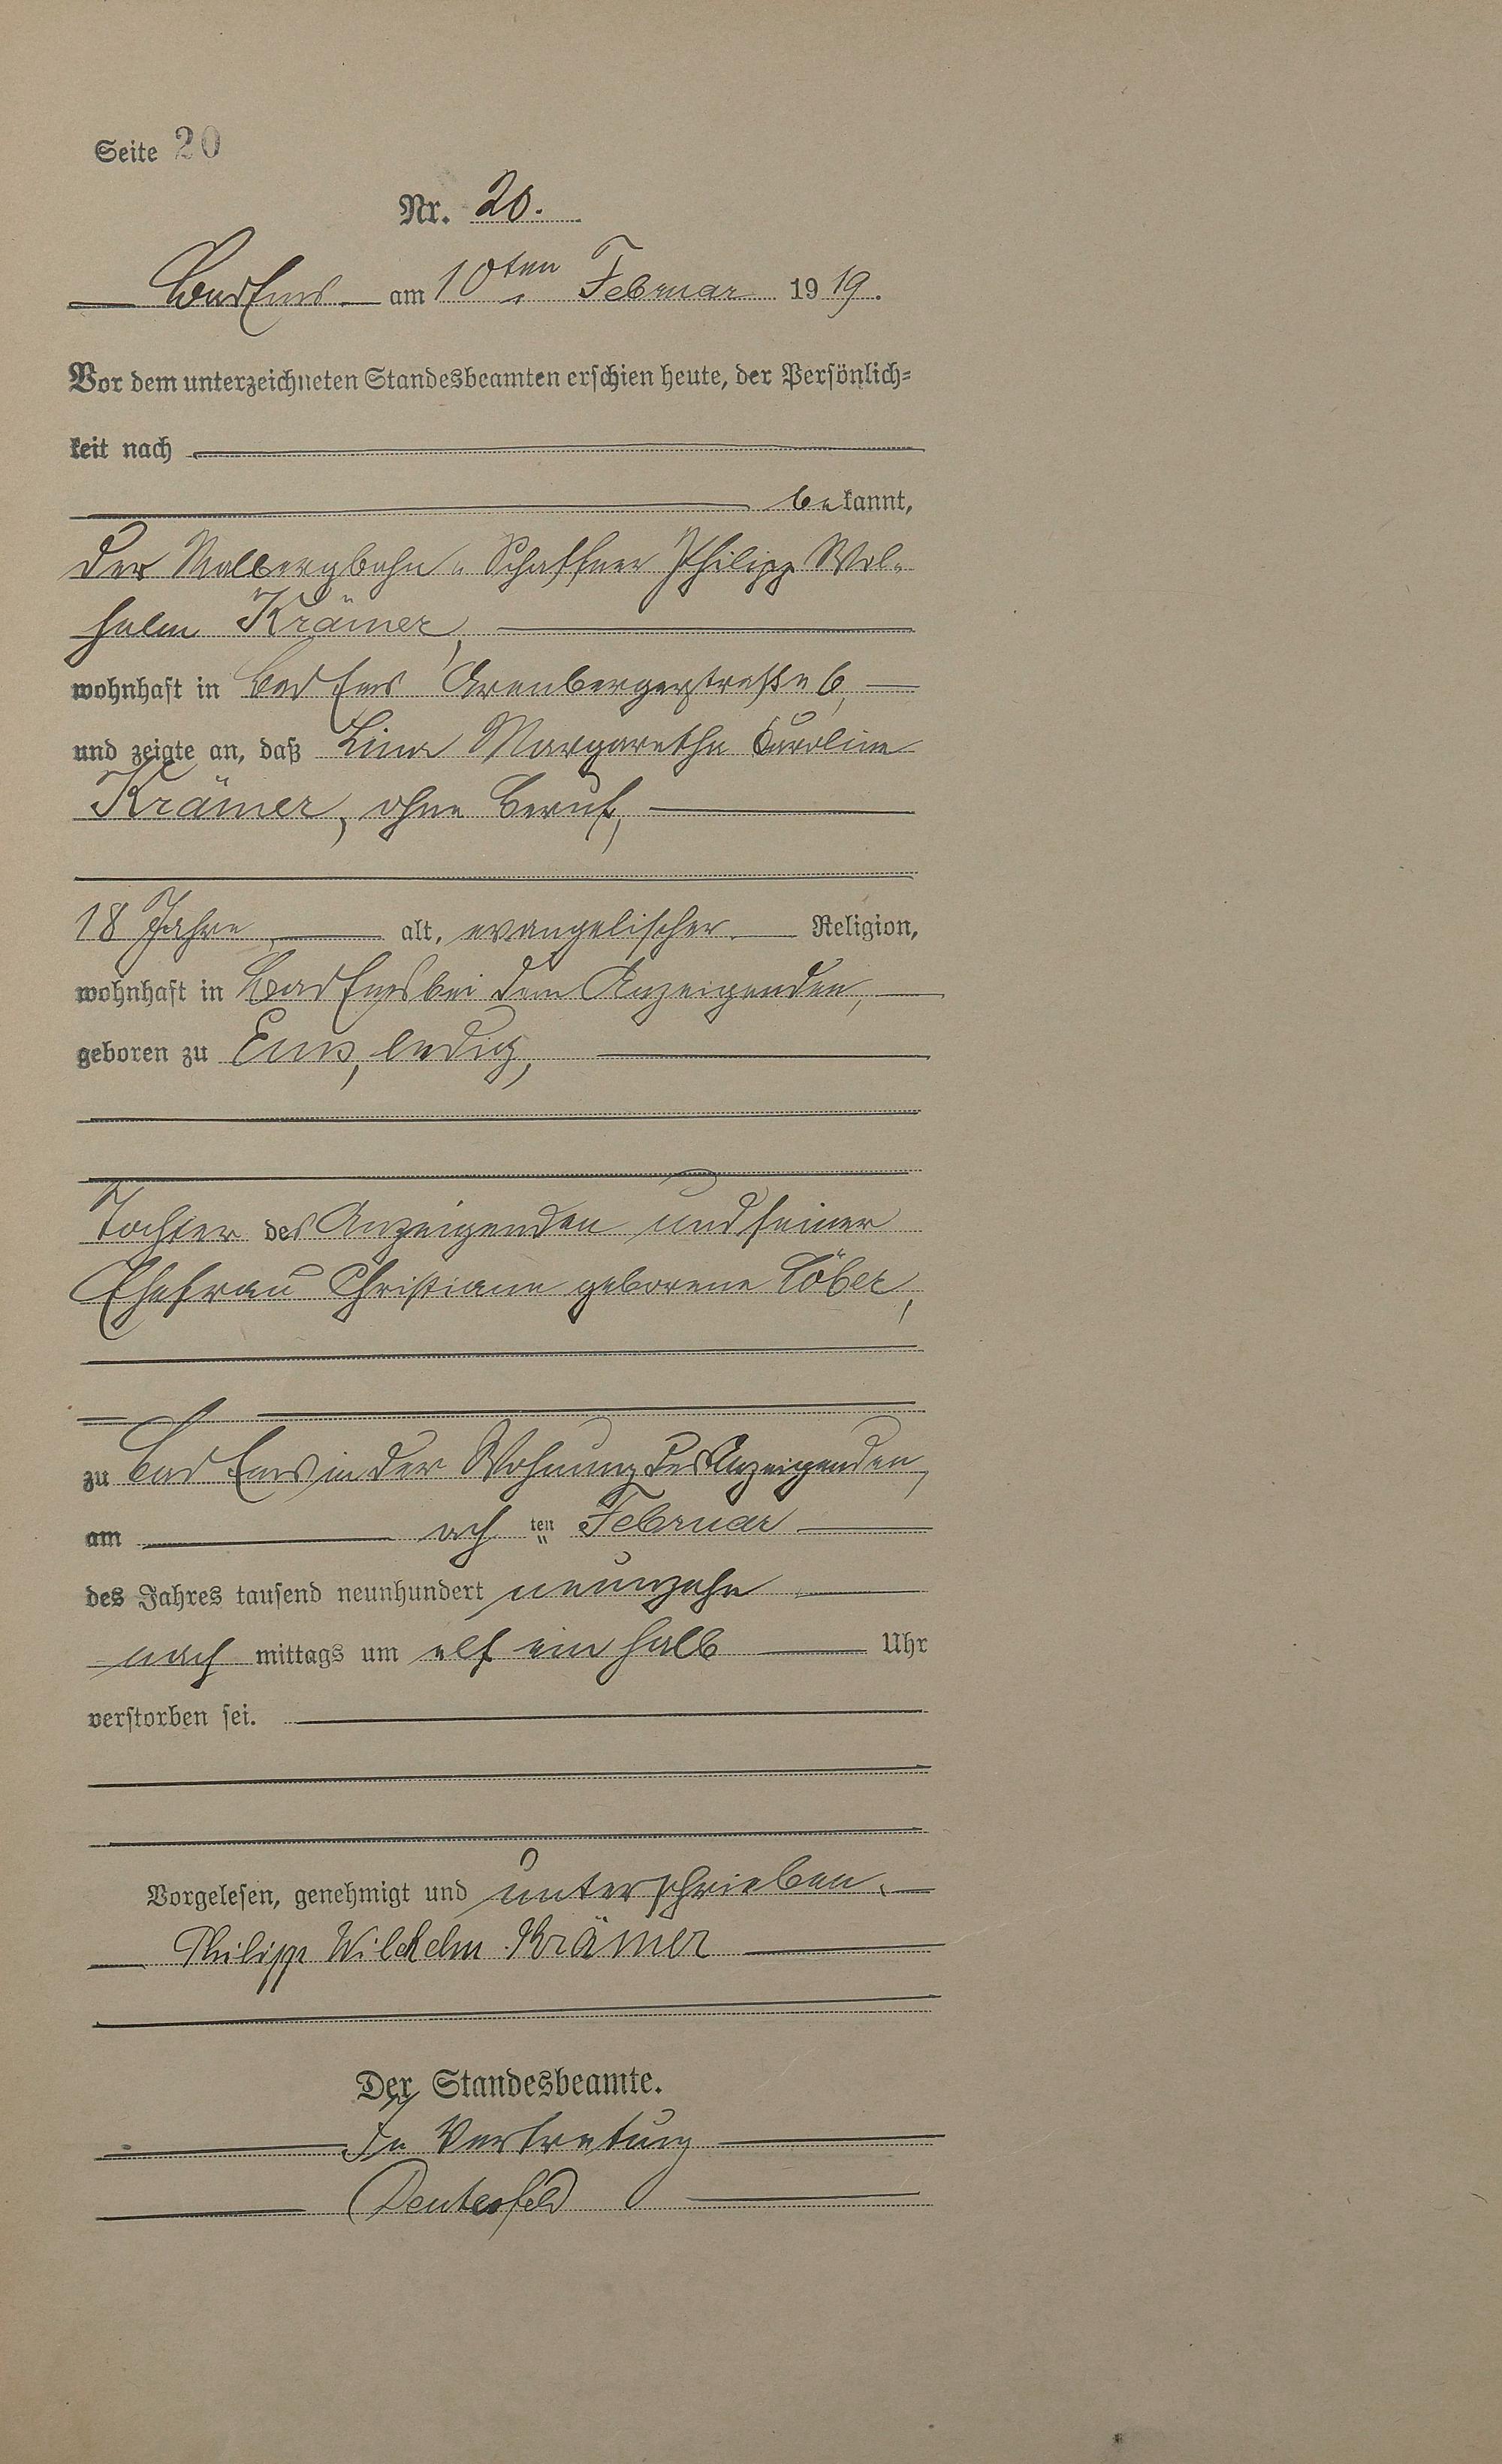 Seite 20
Nr. 20.
Bad Ems am 10ten Februar 1919.
Vor dem unterzeichneten Standesbeamten erschien heute, der Persönlich-
keit nach
bekannt,
der Malbergbahn-Schaffner Philipp Wil-
helm Krämer,
wohnhaft in Bad Ems Arenbergerstraße 6,
und zeigte an, daß Lina Margaretha Karoline
Krämer, ohne Beruf,
18 Jahre alt, evangelischer Religion,
wohnhaft in Bad Ems bei dem Anzeigenden,
geboren zu Ems, ledig,
Tochter des Anzeigenden und seiner
Ehefrau Christiane geborene Löber,
zu Bad Ems in der Wohnung des Anzeigenden,
am achten Februar
des Jahres tausend neunhundert neunzehn
nachmittags um elf ein halb Uhr
verstorben sei.
Vorgelesen, genehmigt und unterschrieben.
Philipp Wilhelm Krämer
Der Standesbeamte.
In Vertretung